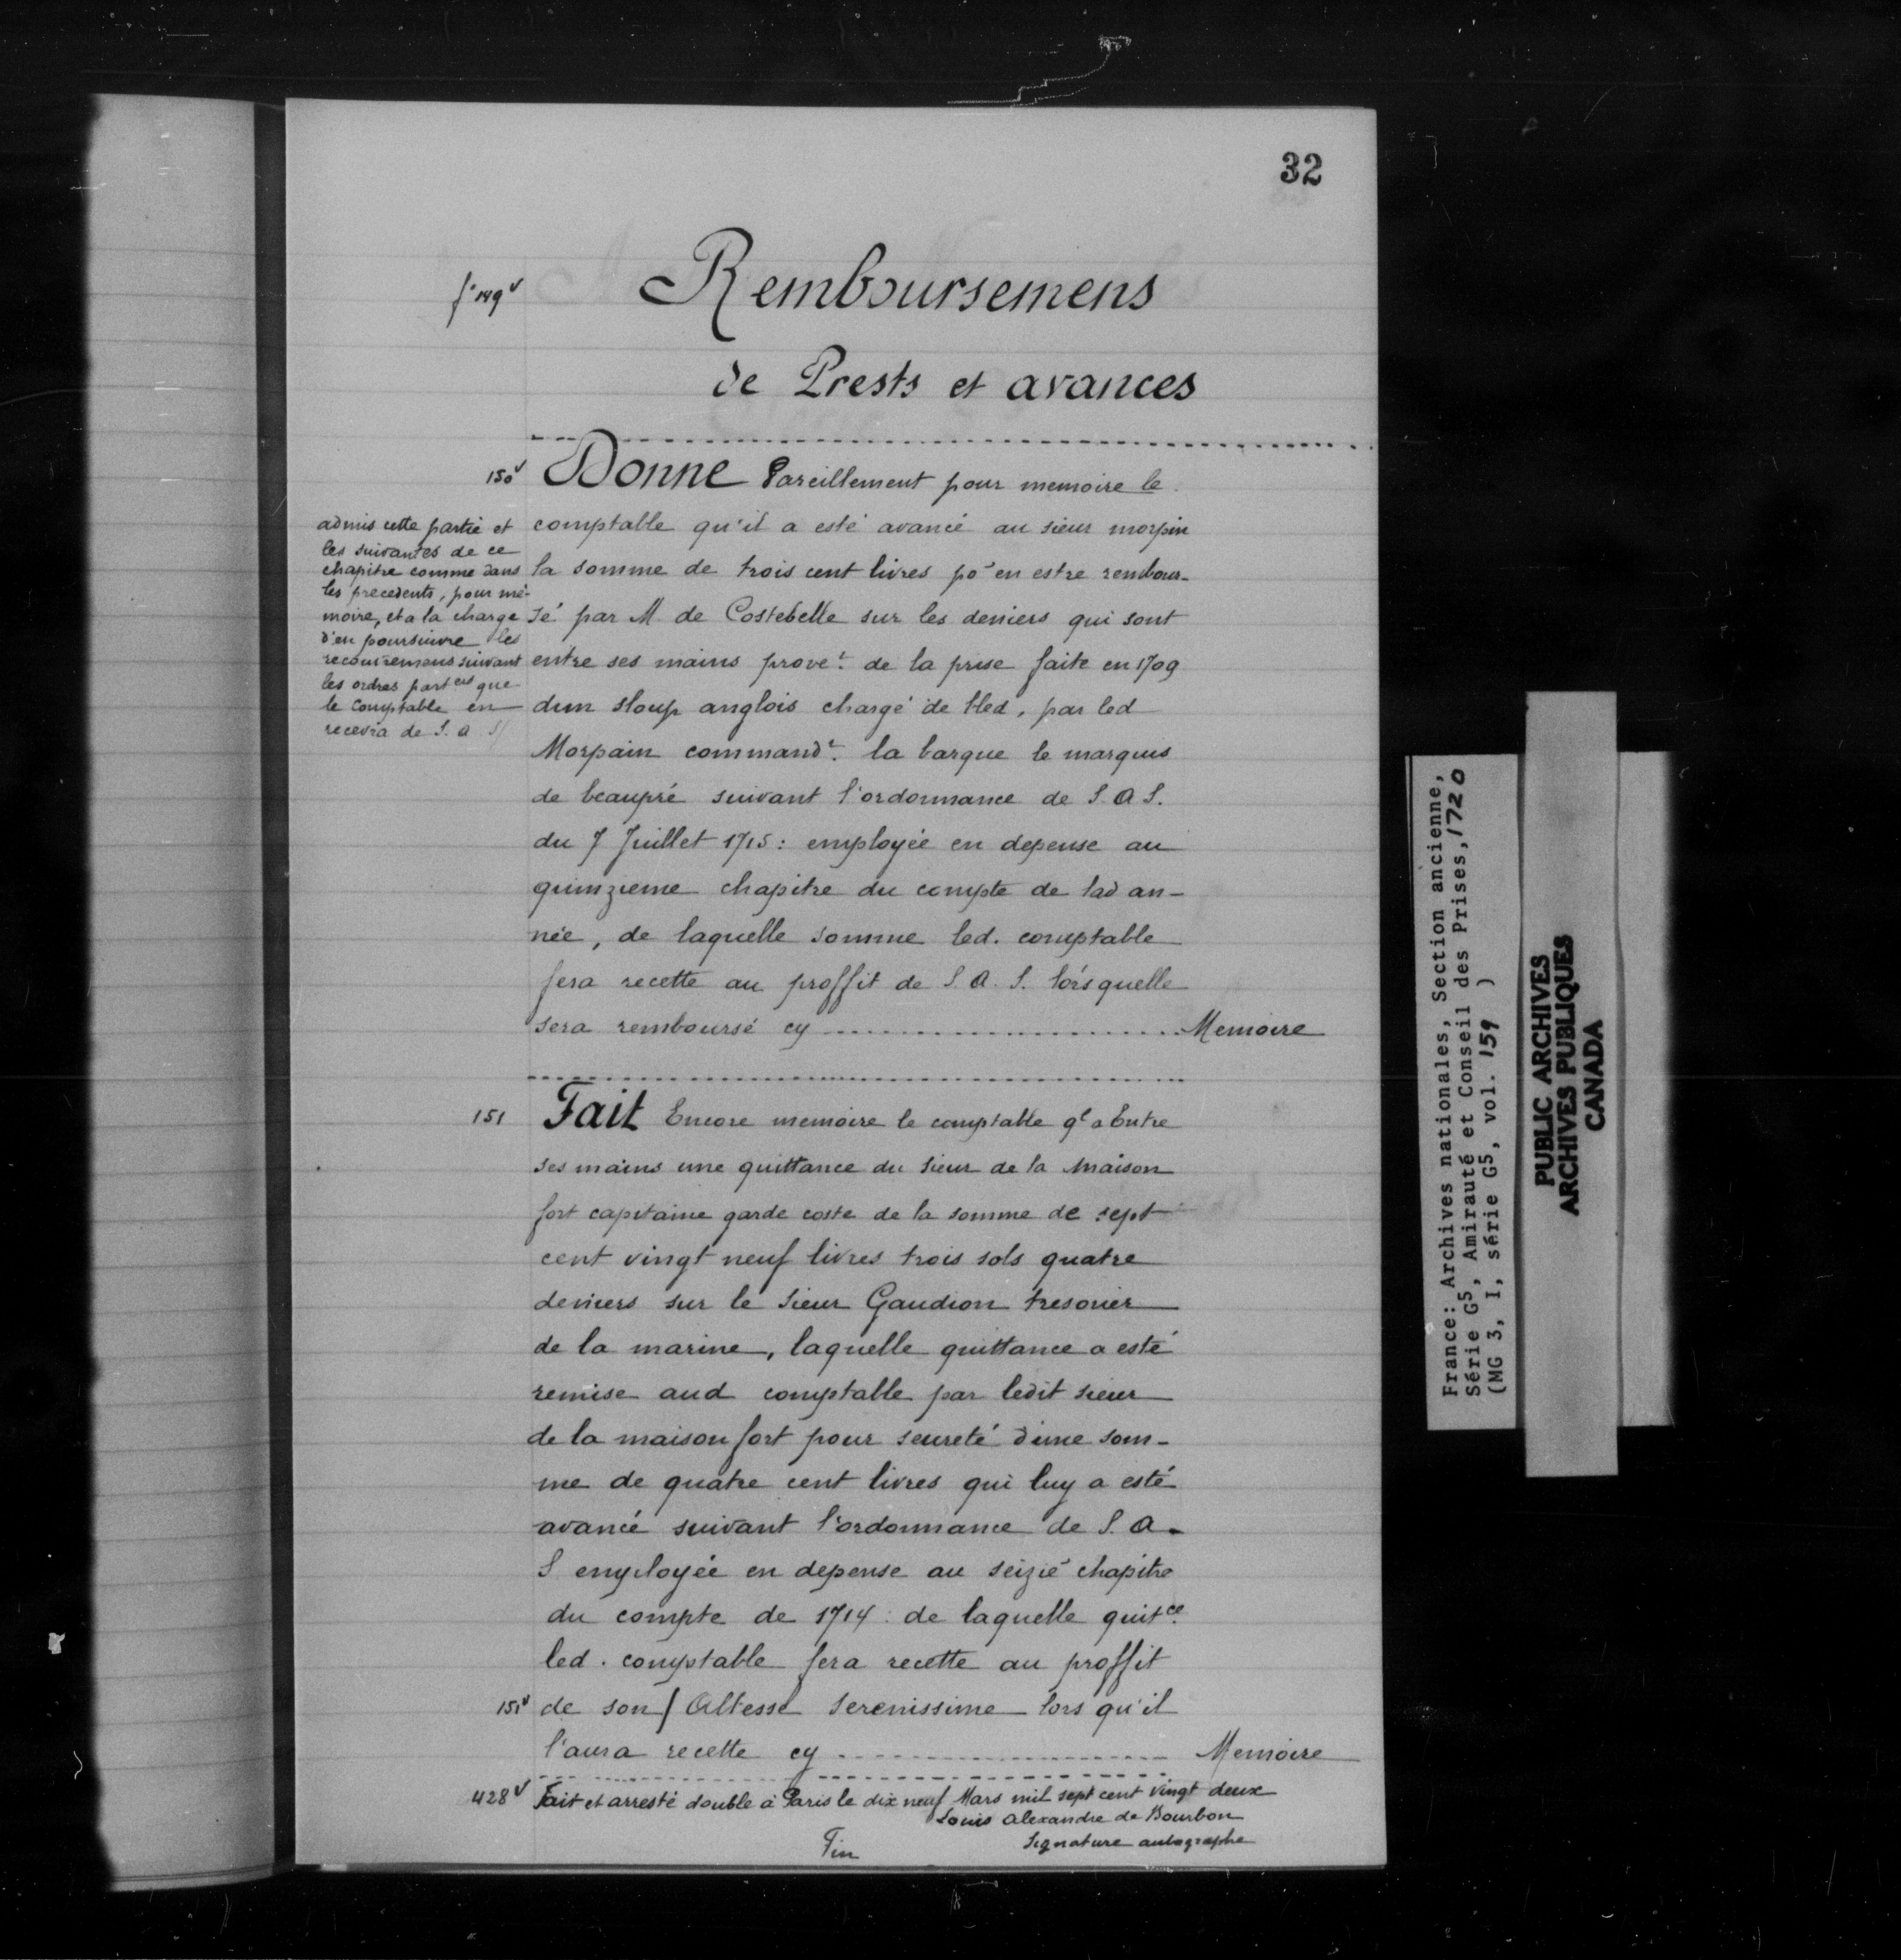 32
fº 149v
Remboursemens
de Prests et avances
150v Donne Pareillement pour memoire le
comptable qu'il a esté avancé au sieur morpin
la somme de trois cent livres po~ en estre rembour-
sé par M de Costebelle sur les deniers qui sont
entre ses mains provet. de la prise faite en 1709
dun sloup anglois chargé de bled, par led
Morpain commandt. la barque le marquis
de beaupré suivant l'ordonnance de S. A S.
du 7 Juillet 1715: employée en depense au
quinzieme chapitre du compte de lad an-
née, de laquelle somme led. comptable
fera recette au proffit de S. A. S. lorsquelle
sera remboursé cy ........ Memoire
admis cette partie et
les suivantes de ce
chapitre comme dans
les precedents, pour mé-
moire, et a la charge
d'en poursuivre les
recouvremens suivant
les ordres parters que
le comptable en
recevra de S. A S/
151 Fait Encore memoire le comptable ql a Entre
ses mains une quittance du sieur de la maison
fort capitaine garde coste de la somme de sept
cent vingt neuf livres trois sols quatre
deniers sur le sieur Gaudion tresorier
de la marine, laquelle quittance a esté
remise aud comptable par ledit sieur
de la maison fort pour seureté d'une som-
me de quatre cent livres qui luy a esté
avancé suivant l'ordonnance de S. A.
S employée en depense au seizie~ chapitre
du compte de 1714: de laquelle quitce.
led. comptable fera recette au proffit
151v de son / Altesse serenissime lors qu'il
l'aura recette cy ........ Memoire
428v Fait et arresté double à Paris le dix neuf Mars mil sept cent vingt deux
Louis Alexandre de Bourbon
Signature autographe
Fin
France: Archives nationales, Section ancienne,
Série G5, Amirauté et Conseil des Prises, 1720
(MG 3, I, série G5, vol. 159 )
PUBLIC ARCHIVES
ARCHIVES PUBLIQUES
CANADA